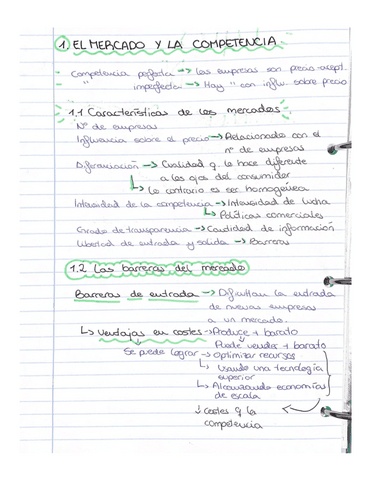 1. EL MERCADO Y LA COMPETENCIA
- Competencia perfecta → Las empresas son precio-acept.
- " imperfecta → Hay " con influ. sobre precio
1.1 Características de los mercados
Nº de empresas
Influencia sobre el precio → Relacionados con el
nº de empresas
Diferenciación → Cualidad q. le hace diferente
a los ojos del consumidor
↳ Lo contrario es ser homogénea
Intensidad de la competencia → Intensidad de lucha
↳ Políticas comerciales
Grado de transparencia → Cantidad de información
Libertad de entrada y salida → Barreras
1.2 Las barreras del mercado
Barreras de entrada → Dificultan la entrada
de nuevas empresas
a un mercado.
↳ Ventajas en costes → Produce + barato
↓
Puede vender + barato
Se puede lograr → Optimizar recursos
↳ Usando una tecnología
superior
↳ Alcanzando economías
de escala
↓ costes q la
competencia